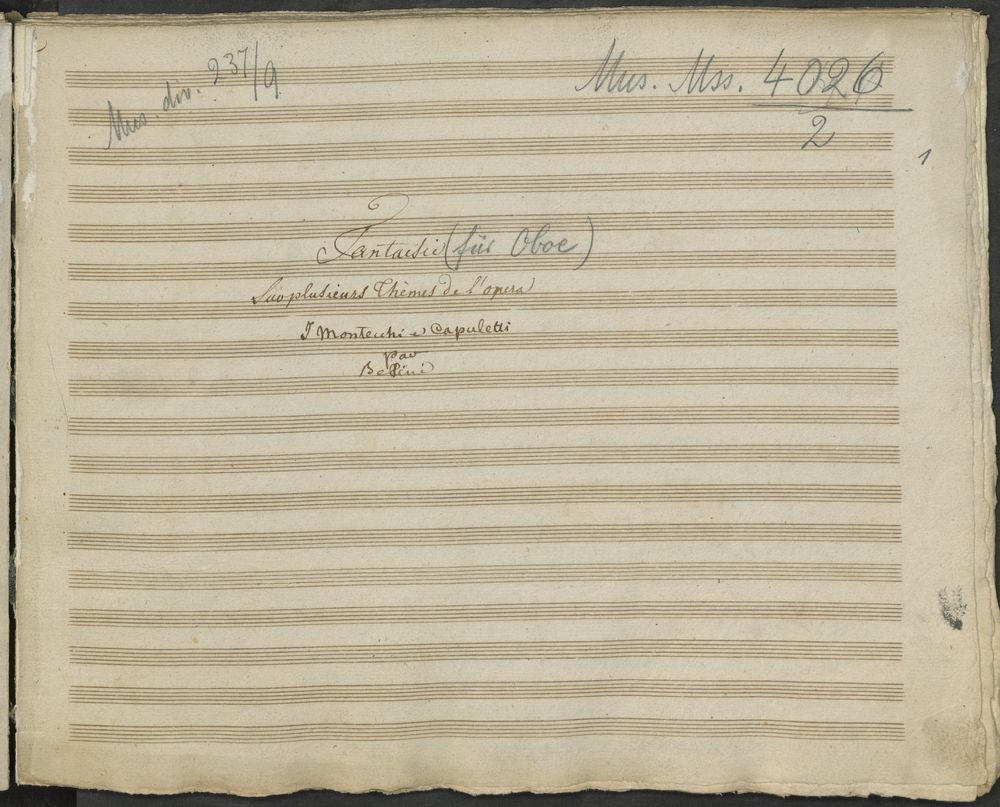 Mus. div. 237/9
Mus. Mss. 4026
2
1
Fantaisie (für Oboe)
Sur plusieurs Thèmes de l'opera
I Montecchi e Capuletti
par
Bellini